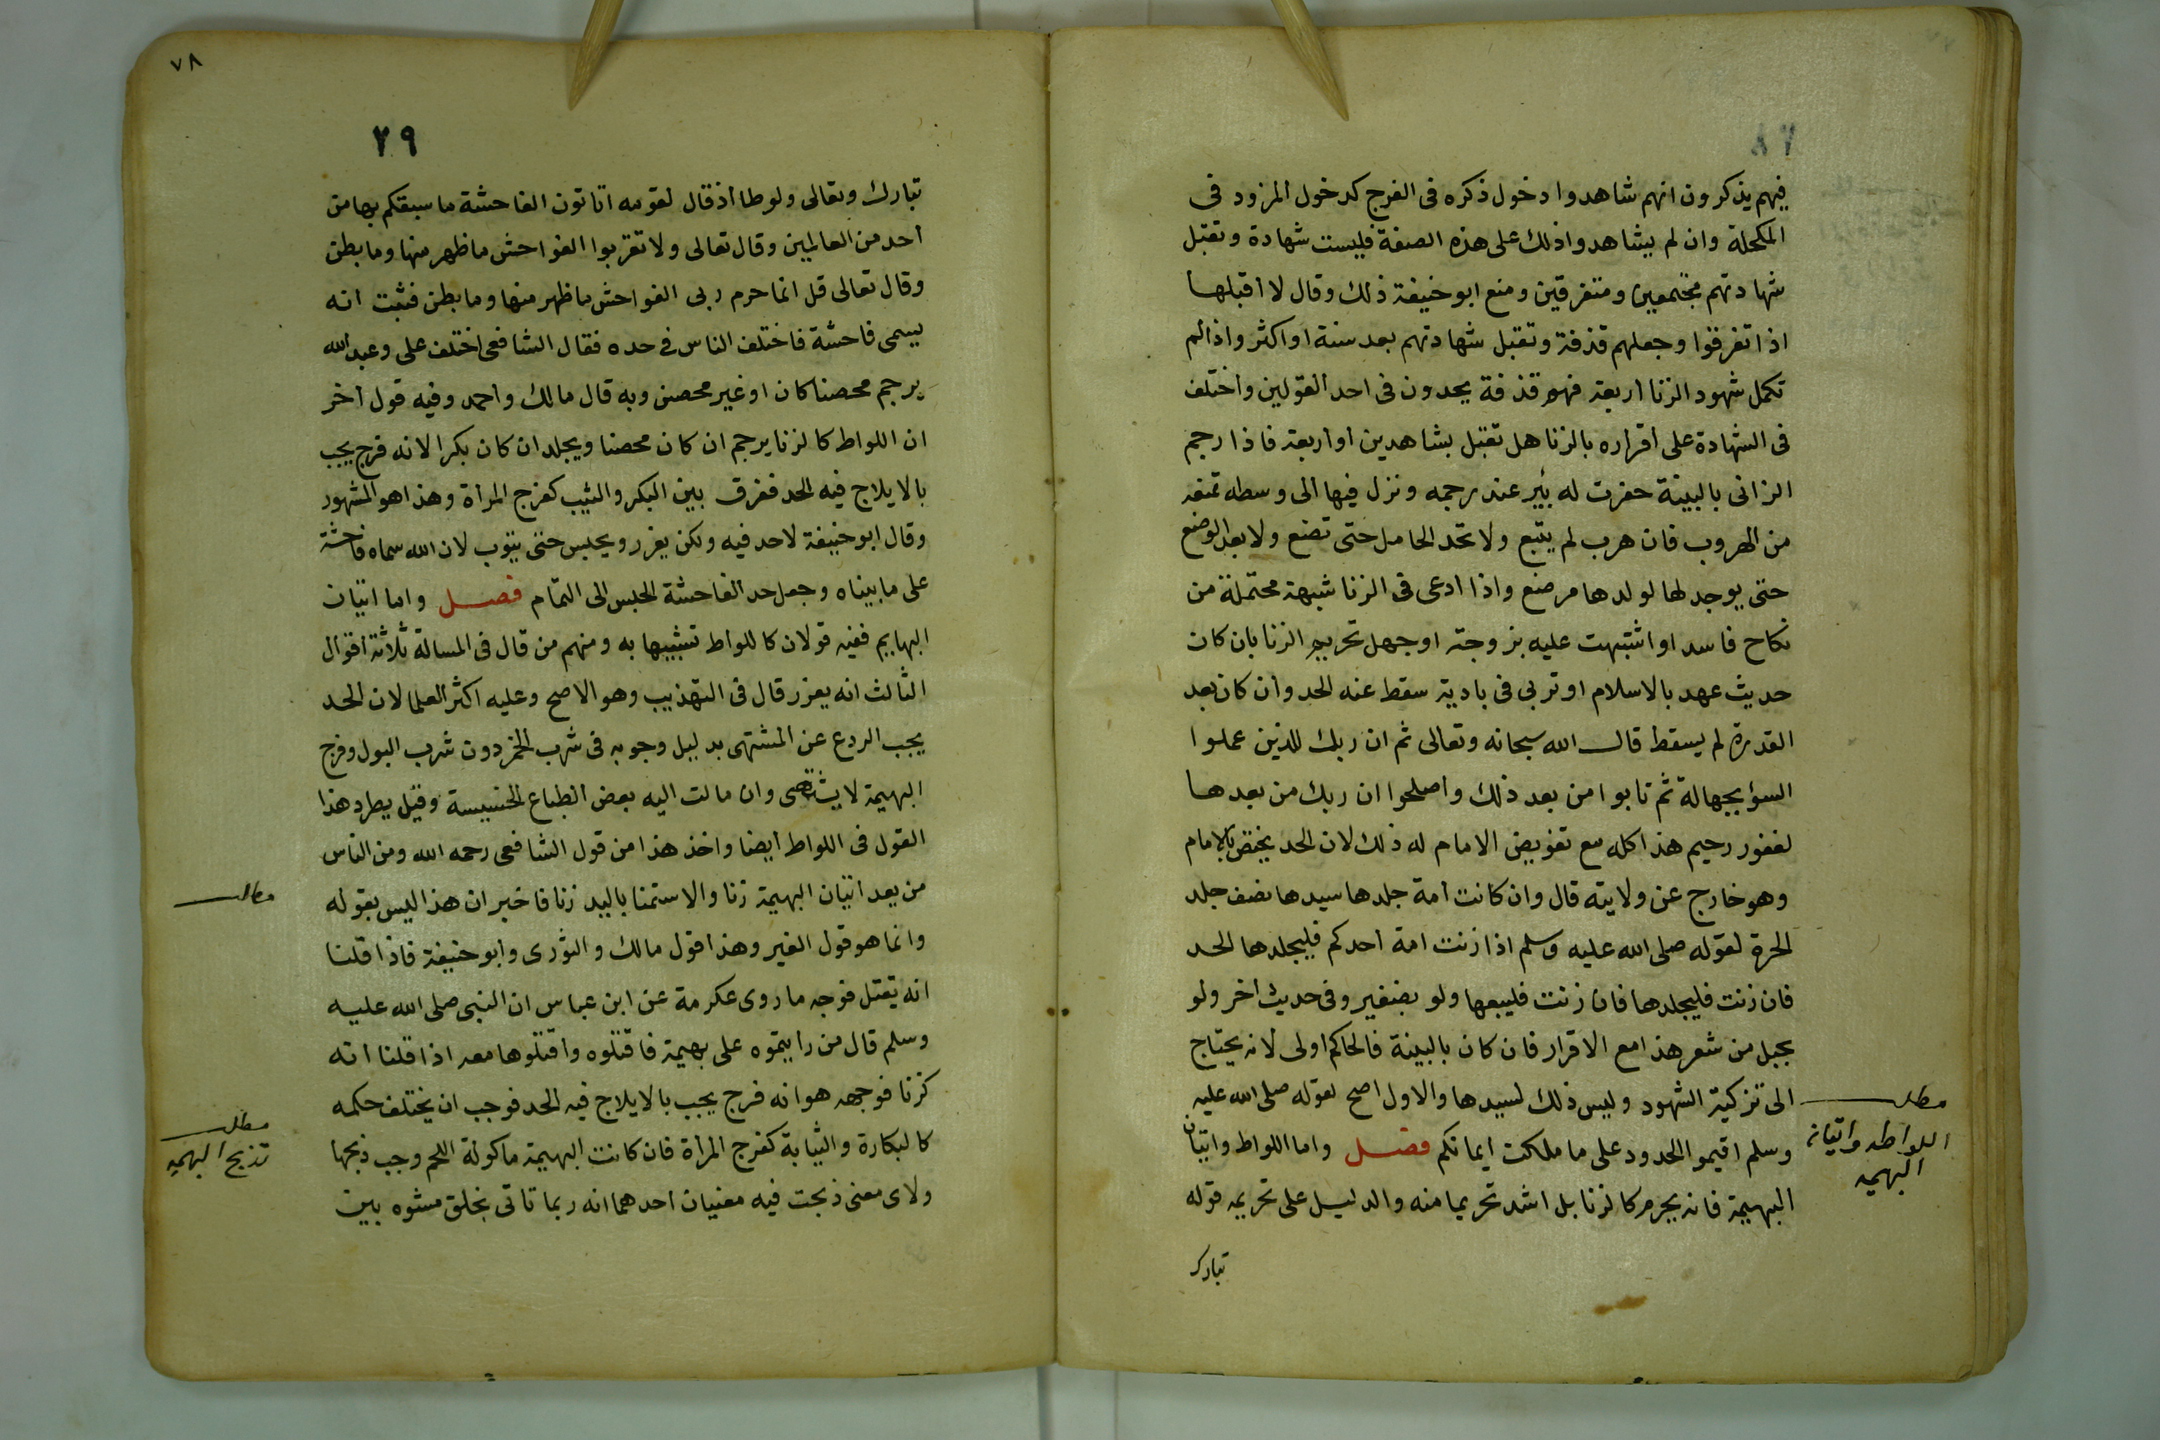 فيهم يذكرون انهم شاهدوا دخول ذكره فى الفرج كدخول المزود فى
المكحلة وان لم يشاهدوا ذلك على هذه الصفة فليست شهادة وتقبل
شهادتهم مجتمعين ومتفرقين ومنع ابو حنيفة ذلك وقال لا اقبلها
اذا تفرقوا وجعلهم قذفة وتقبل شهادتهم بعد سنة او اكثر واذا لم
تكمل شهود الزنا اربعة فهم قذفة يحدون فى احد القولين واختلف
فى الشهادة على اقراره بالزنا هل تقبل بشاهدين او اربعة فاذا رجم
الزانى بالبينة حفرت له بئير عند رجمه ونزل فيها الى وسطه تمنعه
من الهروب فان هرب لم يتبع ولا تحد الحامل حتى تضع ولا بعد الوضع
حتى يوجد لها لولدها مرضع واذا ادعى فى الزنا شبهة محتملة من
نكاح فاسد او اشتبهت عليه بزوجته او جهل تحريم الزنا بان كان
حديث عهد بالاسلام او تربى فى بادية سقط عنه الحد وان كان بعد
القدرة لم يسقط قال الله سبحانه وتعالى ثم ان ربك للذين عملوا
السؤ بجهالة ثم تابوا من بعد ذلك واصلحوا ان ربك من بعدها
لغفور رحيم هذا كله مع تفويض الامام له ذلك لان الحد يختص بالامام
وهو خارج عن ولايته قال وان كانت امة جلدها سيدها نصف جلد
الحرة لقوله صلى الله عليه وسلم اذا زنت امة احدكم فليجلدها الحد
فان زنت فليجلدها فان زنت فليبعها ولو بضفير وفى حديث اخر ولو
بحبل من شعر هذا مع الاقرار فان كان بالبينة فالحاكم اولى لانه يحتاج
الى تزكية الشهود وليس ذلك لسيدها والاول اصح لقوله صلى الله عليه
وسلم اقيمو الحدود على ما ملكت ايمانكم فصل واما اللواط واتيان
البهيمة فانه يحرم كالزنا بل اشد تحريما منه والدليل على تحريمه قوله
تبارك
مطلب
اللواطه واتيان
البهيمه
٧٨
٢٩
تبارك وتعالى ولوطا اذ قال لقومه اتاتون الفاحشة ما سبقكم بها من
احد من العالمين وقال تعالى ولا تقربوا الفواحش ما ظهر منها وما بطن
وقال تعالى قل انما حرم ربى الفواحش ما ظهر منها وما بطن فثبت انه
يسمى فاحشة فاختلف الناس فى حده فقال الشافعى اختلف على وعبد الله
يرجم محصنا كان او غير محصن وبه قال مالك واحمد وفيه قول اخر
ان اللواط كالزنا يرجم ان كان محصنا ويجلد ان كان بكرا لانه فرج يجب
بالايلاج فيه الحد ففرق بين البكر والثيب كفرج المرأة وهذا هو المشهور
وقال ابو حنيفة لا حد فيه ولكن يعزر ويحبس حتى يتوب لان الله سماه فاحشة
على ما بيناه وجعل حد الفاحشة الحبس الى التمام فصل واما اتيان
البهايم ففيه قولان كاللواط تشبيها به ومنهم من قال فى المسالة ثلاثة اقوال
الثالث انه يعزر قال فى التهذيب وهو الاصح وعليه اكثر العلما لان الحد
يجب الردع عن المشتهى بدليل وجوبه فى شرب الخمر دون شرب البول وفرج
البهيمة لا يشتهى وان مالت اليه بعض الطباع الخسيسة وقيل يطرد هذا
القول فى اللواط ايضا واخذ هذا من قول الشافعى رحمه الله ومن الناس
من يعد اتيان البهيمة زنا والاستمنا باليد زنا فاخبر ان هذا ليس بقوله
وانما هو قول الغير وهذا قول مالك والثورى وابو حنيفة فاذا قلنا
انه يقتل فوجه ما روى عكرمة عن ابن عباس ان النبى صلى الله عليه
وسلم قال من رايتموه على بهيمة فاقتلوه واقتلوها معه اذا قلنا انه
كزنا فوجهه هو انه فرج يجب بالايلاج فيه الحد فوجب ان يختلف حكمه
كالبكارة والثيابة كفرج المرأة فان كانت البهيمة ماكولة اللحم وجب ذبحها
ولاى معنى ذبحت فيه معنيان احدهما انه ربما تاتى بخلق مشوه بين
مطلب
مطلب
تذبح البهيمه